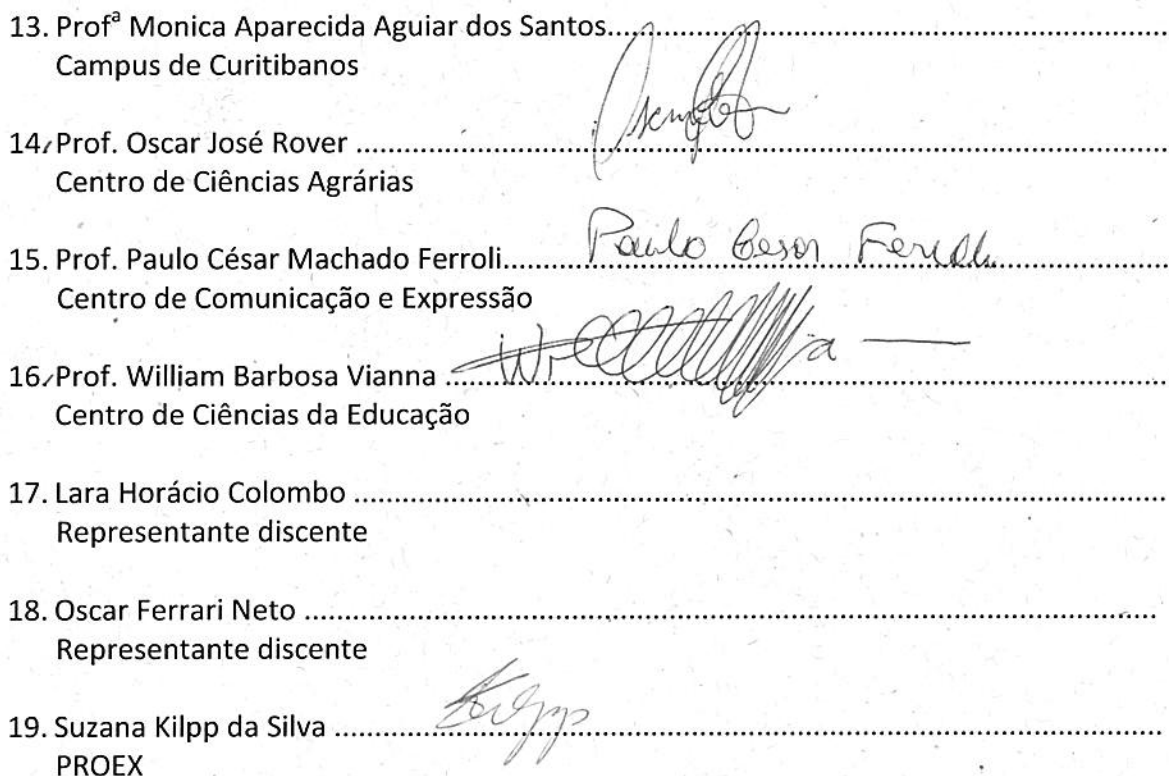 13. Profª Monica Aparecida Aguiar dos Santos................................................................
Campus de Curitibanos
14. Prof. Oscar José Rover ................................................................
Centro de Ciências Agrárias
Paulo Cesar Ferroli
15. Prof. Paulo César Machado Ferroli................................................................
Centro de Comunicação e Expressão
16. Prof. William Barbosa Vianna ................................................................
Centro de Ciências da Educação
17. Lara Horácio Colombo ................................................................
Representante discente
18. Oscar Ferrari Neto ................................................................
Representante discente
Kilpp
19. Suzana Kilpp da Silva ................................................................
PROEX